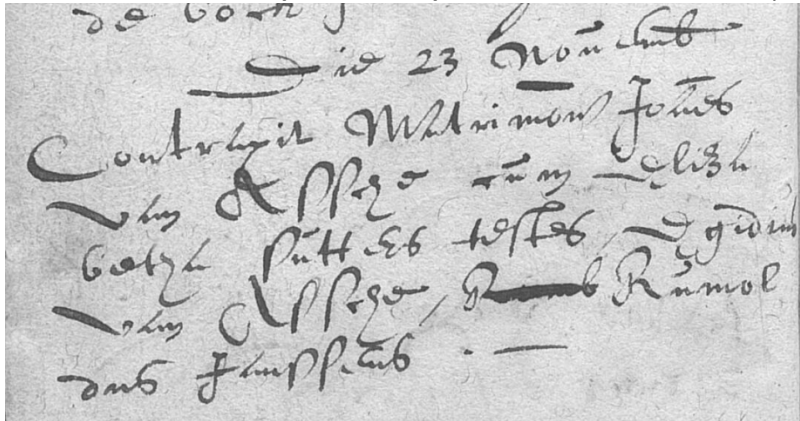 de
Die 23 Novemb
Contraxit Matrimon Joes
van Assche cum Eliza
betha testes, Egidius
van Assche, Rumol
dus Janssens. —